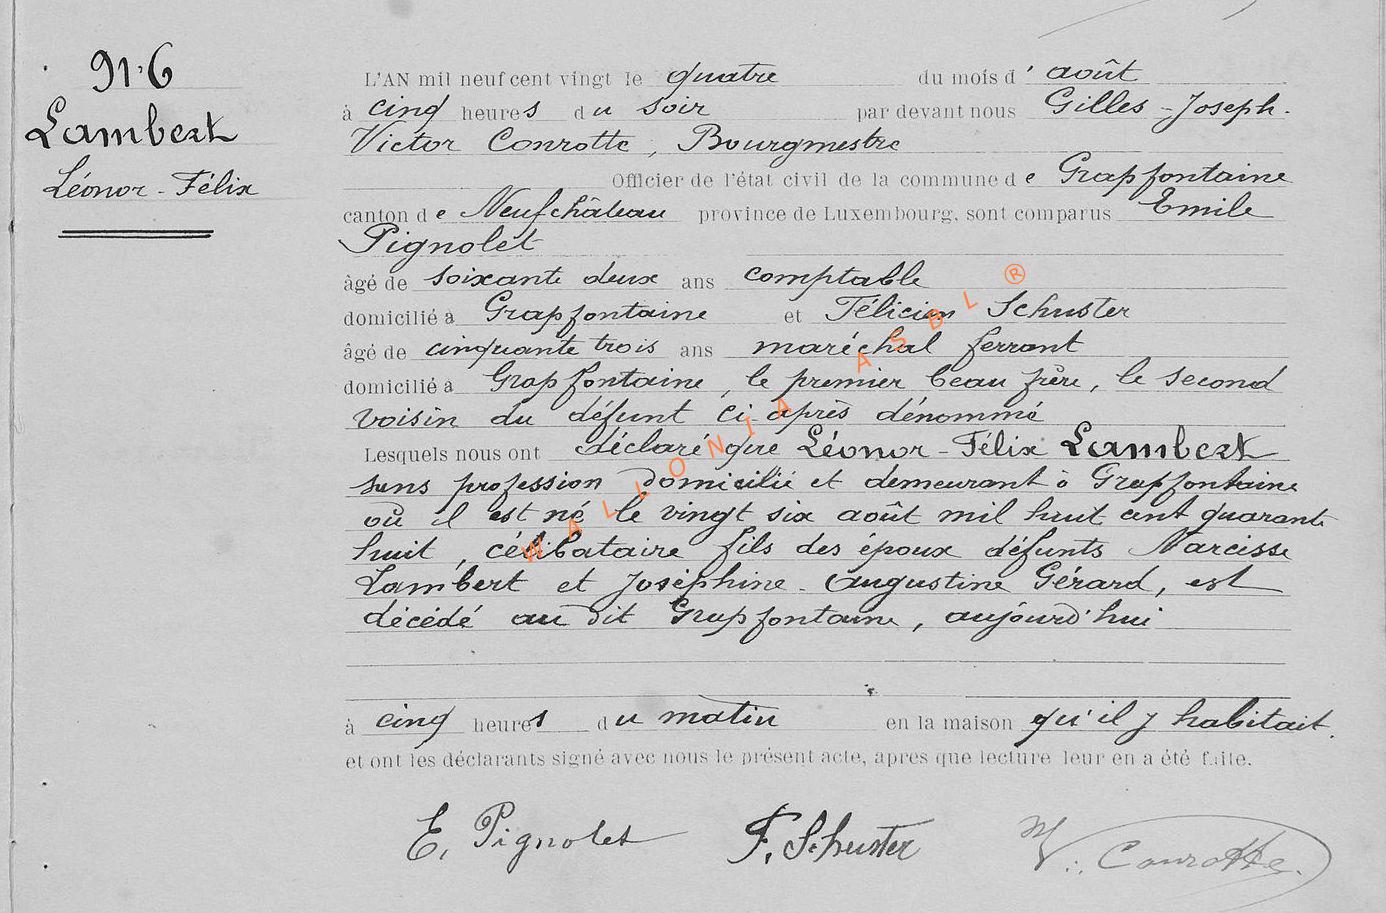 91.6
Lambert
Léonor-Félix
L'AN mil neuf cent vingt le quatre du mois d'août
à cinq heures du soir par devant nous Gilles-Joseph.
Victor Conrotte, Bourgmestre
Officier de l'état civil de la commune de Grapfontaine
canton de Neufchâteau province de Luxembourg, sont comparus Emile
Pignolet
âgé de soixante deux ans comptable
domicilié à Grapfontaine et Félicien Schuster
âgé de cinquante trois ans maréchal ferrant
domicilié à Grapfontaine, le premier beau frère, le second
voisin du défunt ci-après dénommé
Lesquels nous ont déclaré que Léonor-Félix Lambert
sans profession domicilié et demeurant à Grapfontaine
où il est né le vingt six août mil huit cent quarante
huit, célibataire fils des époux défunts Narcisse
Lambert et Joséphine-Augustine Gérard, est
décédé au dit Grapfontaine, aujourd'hui
à cinq heures du matin en la maison qu'il y habitait.
et ont les déclarants signé avec nous le présent acte, après que lecture leur en a été faite.
E. Pignolet F. Schuster V. Conrotte.
WALLONIA ASBL ®